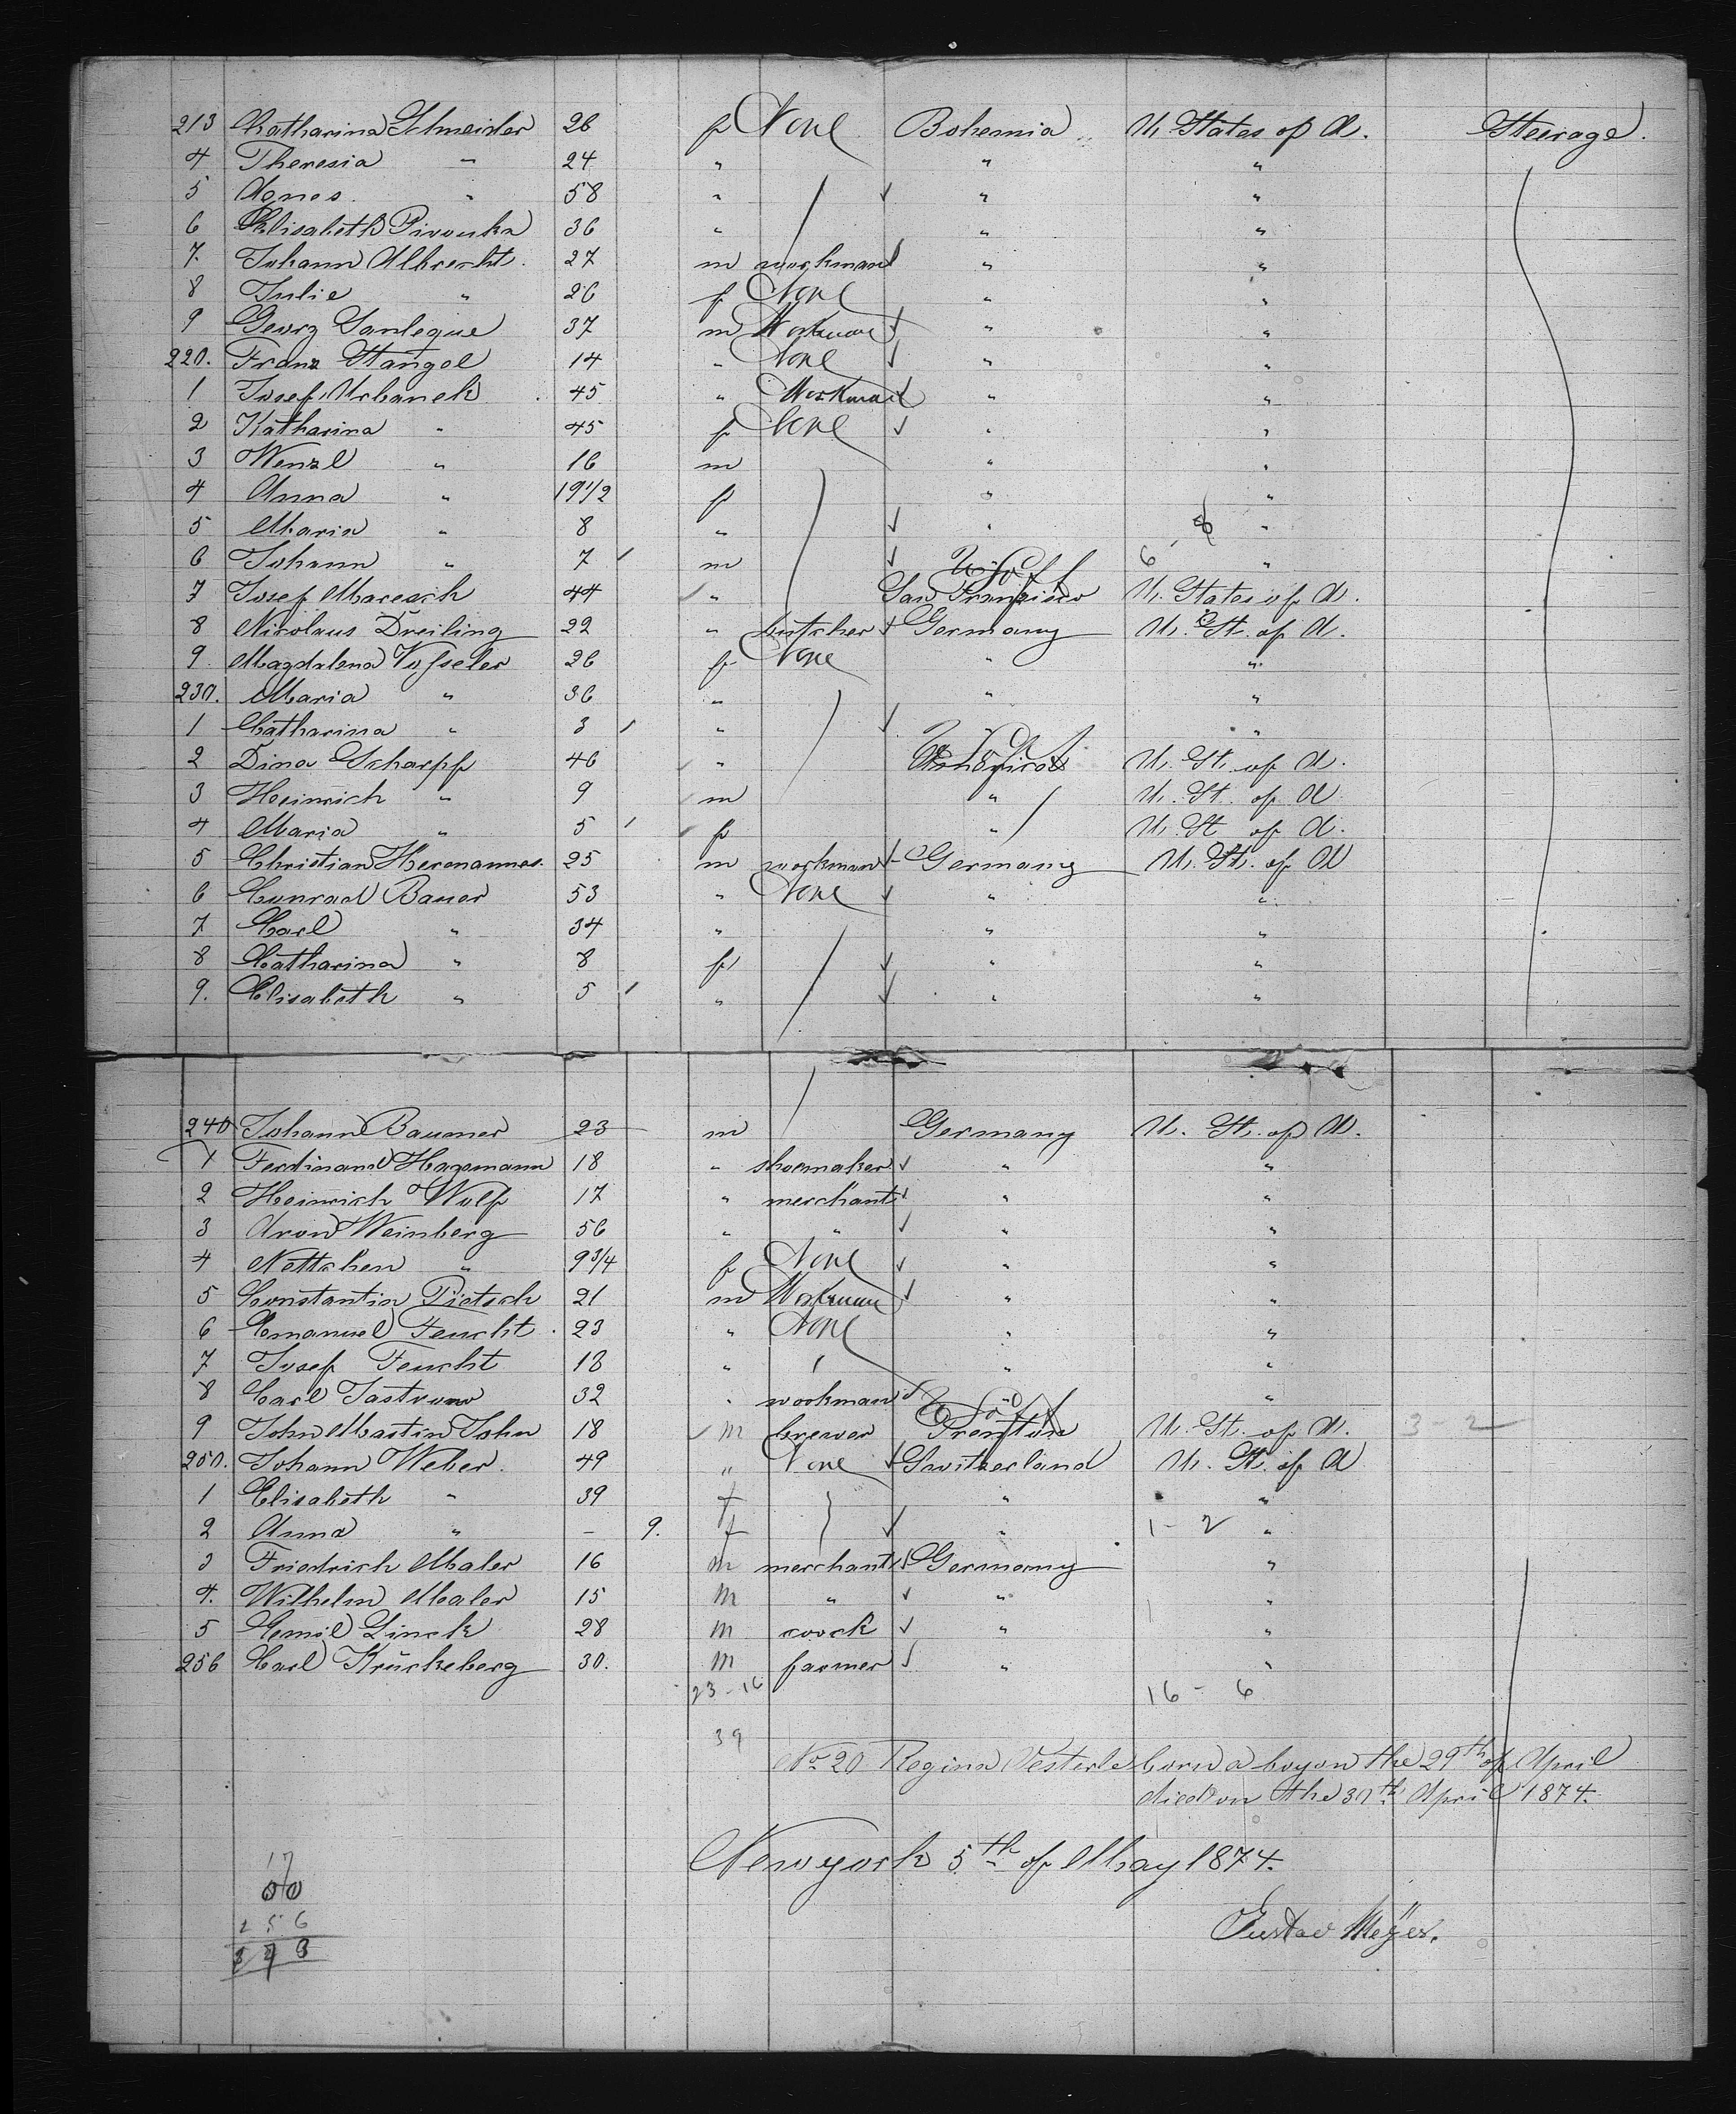 213 Catharina Schneider 26 f None Bohemia U. States of A. Steerage.
4 Theresia " 24 " " "
5 Agnes " 58 " " "
6 Elisabeth Pivonka 36 " " "
7. Johann Albrecht. 27 m workman " "
8 Julie " 26 f None " "
9 Georg Sanleque 37 m Workman " "
220. Franz Stangel 14 " None " "
1 Josef Urbanek 45 " Workman " "
2 Katharina " 45 f None " "
3 Wenzl " 16 m " "
4 Anna " 19 1/2 f " "
5 Maria " 8 " " "
6 Johann " 7 m 6 "
7 Josef Mareach 44 " San Francisco U. States of A.
8 Nicolaus Dreiling 22 " butcher Germany U. St. of A.
9 Magdalena Vosseler 26 f None " "
230. Maria " 36 " " "
1 Catharina " 3 " "
2 Dina Scharpf 46 " U. St. of A.
3 Heinrich " 9 m " U. St. of A
4 Maria " 5 f " U. St of A.
5 Christian Hermannes. 25 m workman Germany U. St. of A
6 Conrad Bauer 53 " None " "
7 Carl " 34 " " "
8 Catharina " 8 f " "
9. Elisabeth " 5 " " "
240 Johann Baumer 23 m Germany U. St. of A.
1 Ferdinand Hagemann 18 " shoemaker " "
2 Heinrich Wolf 17 " merchant " "
3 Aron Weinberg 56 " " " "
4 Nettchen " 9 3/4 f None " "
5 Constantin Pietsch 21 m Workman " "
6 Emanuel Feucht. 23 " None " "
7 Josef Feucht 18 " " "
8 Carl Jastrow 32 " workman "
9 John Martin John 18 m brewer Trenton U. St. of A. 3-2
250. Johann Weber. 49 " None Switzerland U. St. of A
1 Elisabeth " 39 f " "
2 Anna " - 9. f " 1-2 "
3 Friedrich Maler 16 m merchant Germany "
4. Wilhelm Maler 15 m " " "
5 Emil Linck 28 m coock " "
256 Carl Krückeberg 30. m farmer " "
23-16 16-6
39
No 20 Regina Vesterle born a boy on the 29th of April
died on the 30th April 1874.
New york 5th of May 1874.
17
256
Gustav Meyer.